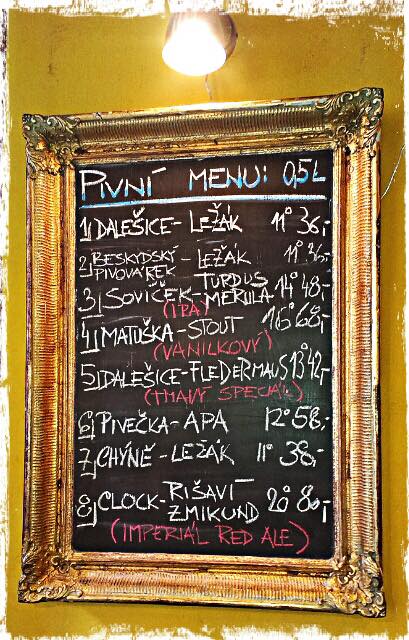 PIVNÍ MENU: 0,5L
1) DALEŠICE - LEŽÁK 11° 36,-
2) BESKYDSKÝ PIVOVÁREK - LEŽÁK 11° 36,-
3) SOVÍČEK - TURDUS MERULA 14° 48,-
(IPA)
4) MATUŠKA - STOUT 16° 68,-
(VANILKOVÝ)
5) DALEŠICE - FLEDERMAUS 13° 42,-
(TMAVÝ SPECIÁL)
6) PIVEČKA - APA 12° 58,-
7) CHÝNĚ - LEŽÁK 11° 38,-
8) CLOCK - RIŠAVÍ ZMIKUND 20° 80,-
(IMPERIAL RED ALE)